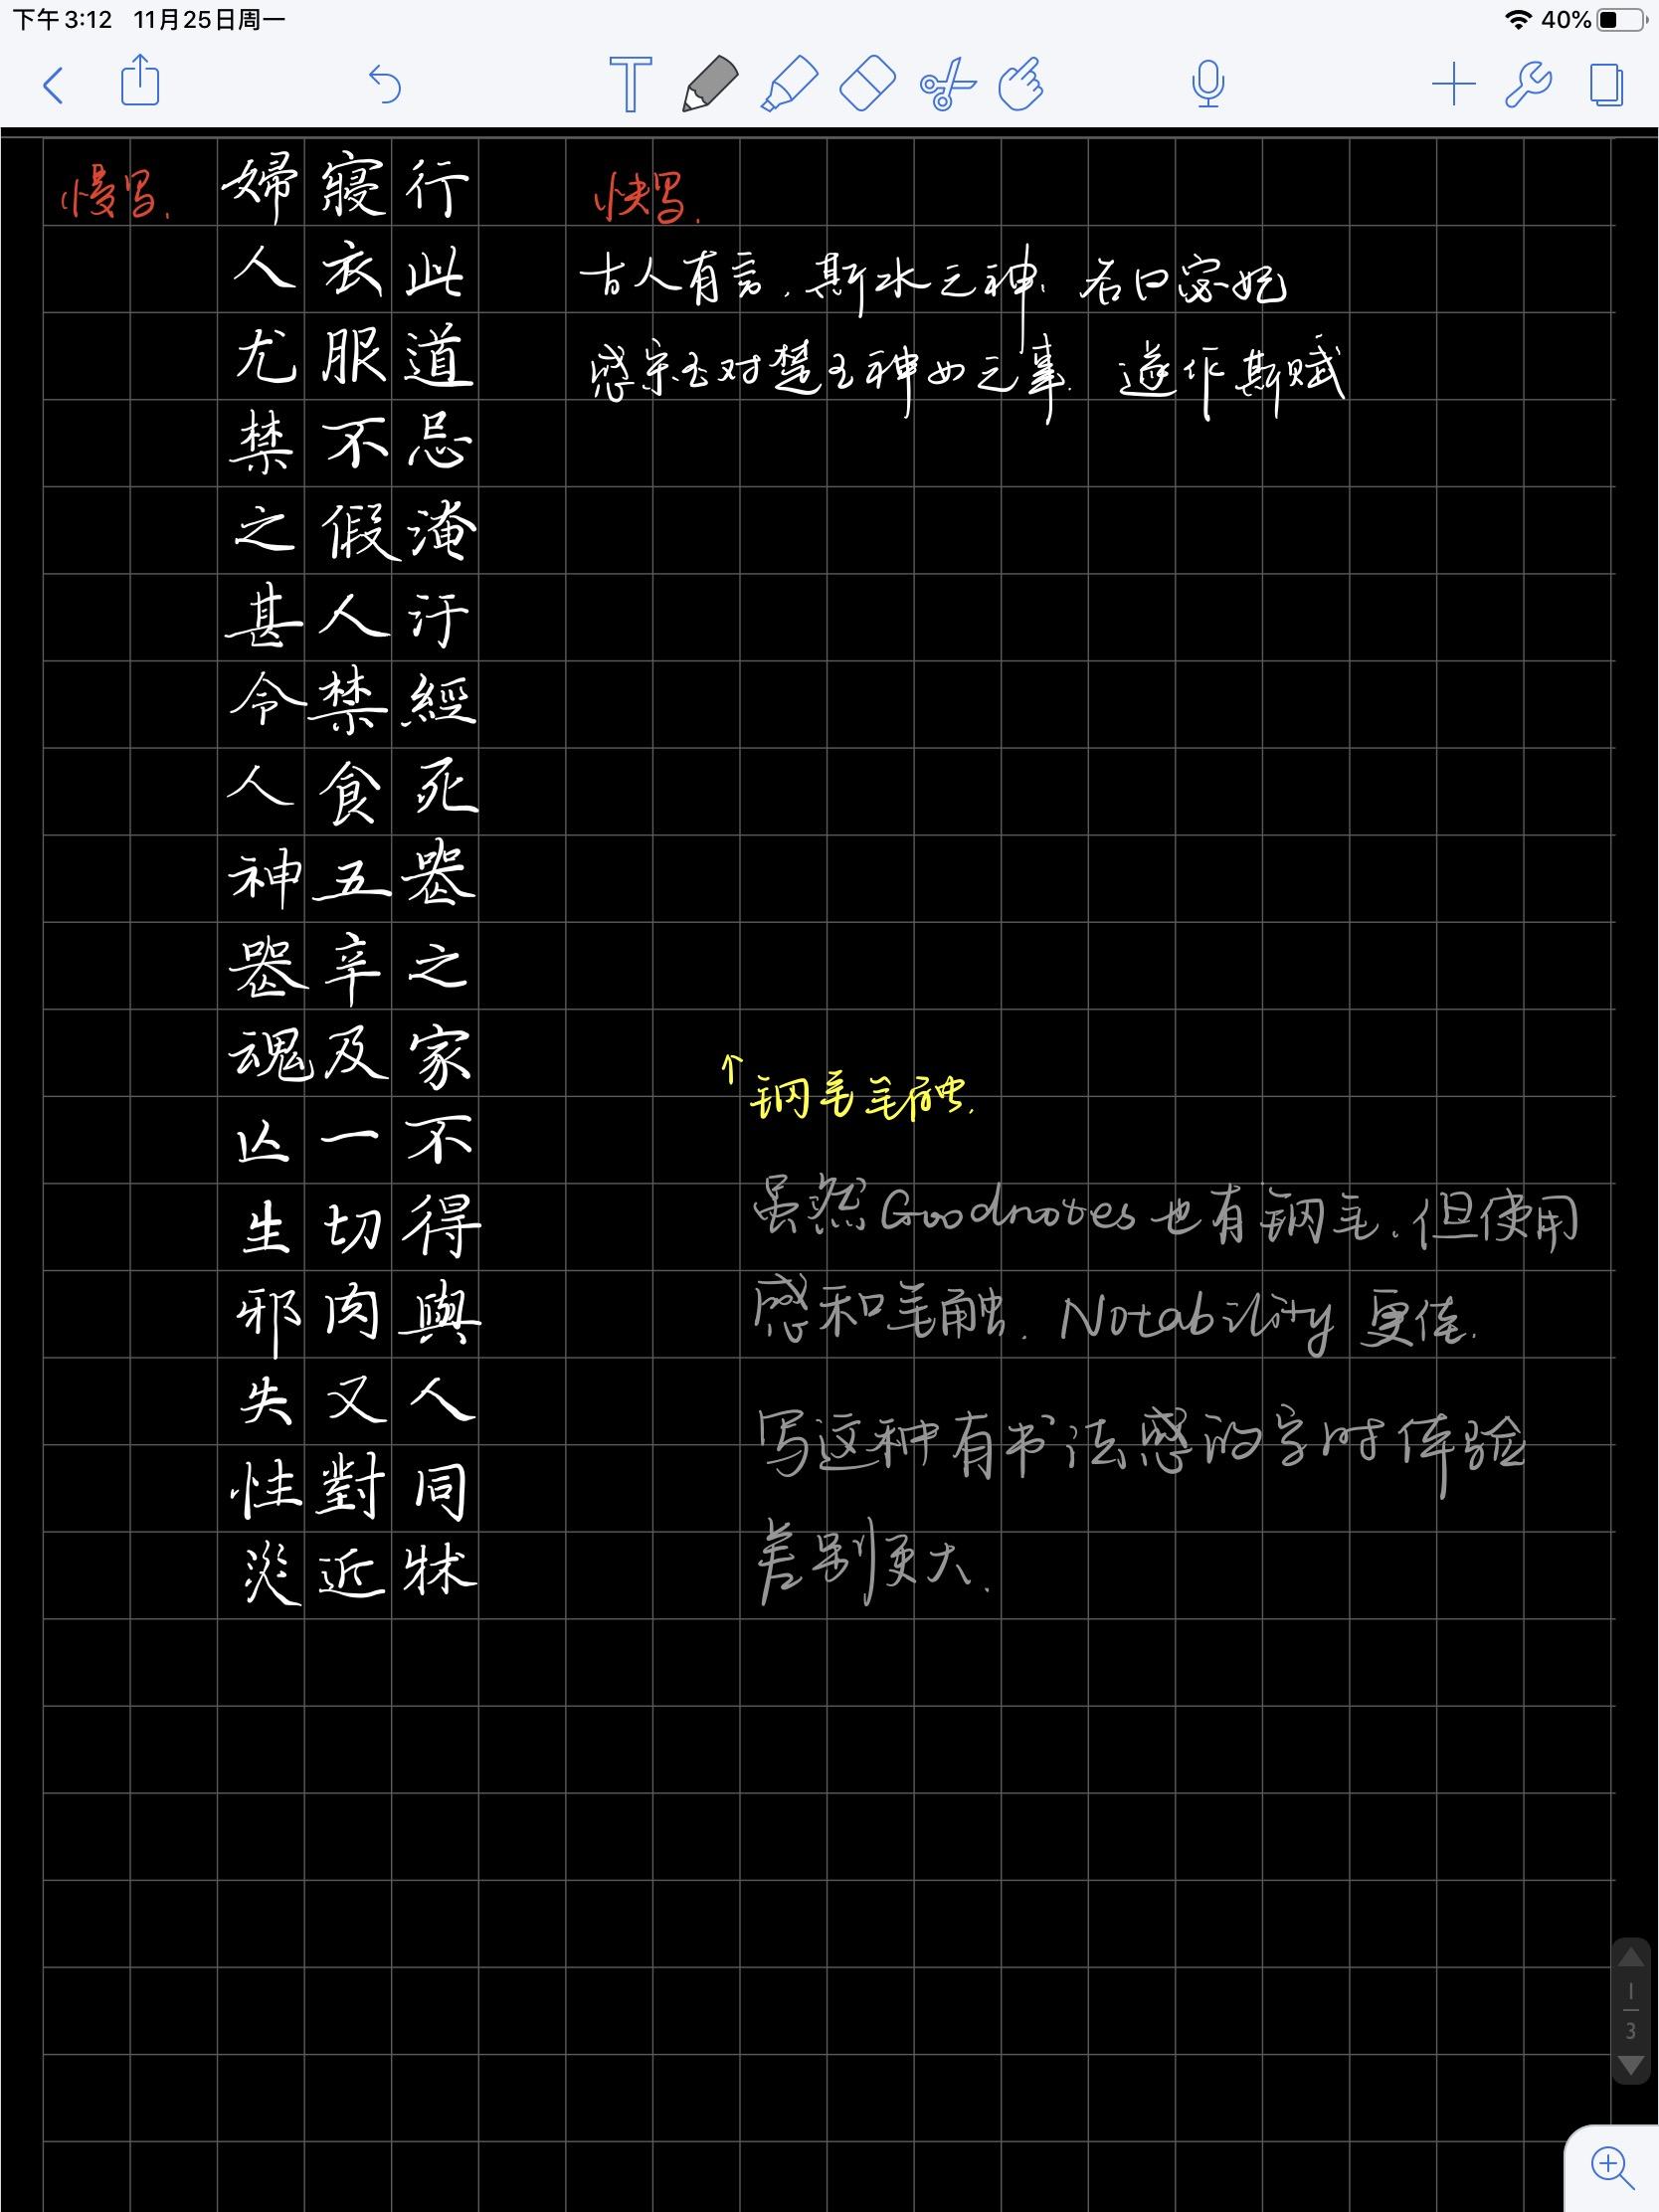 下午3:12 11月25日周一
40%
T
慢写.
行此道忌淹汙經死喪之家不得與人同牀
寢衣服不假人禁食五辛及一切肉又對近
婦人尤禁之甚令人神喪魂亾生邪失性災
快写.
古人有言.斯水之神、名曰宓妃
感宋玉对楚王神女之事.遂作斯赋
↑钢笔笔触.
虽然Goodnotes也有钢笔.但使用
感和笔触.Notability更佳.
写这种有书法感的字时体验
差别更大.
1
3